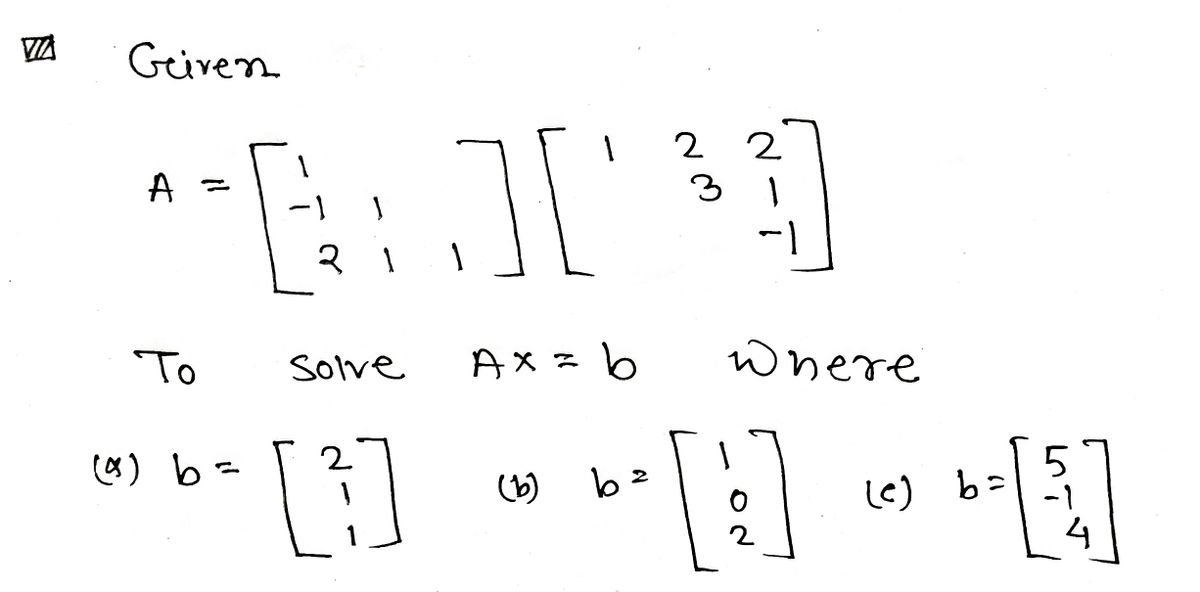 Given
A = [ 1 ] [ 1 2 2 ]
-1 1 3 1
2 1 1 -1
To solve Ax = b where
(a) b = [ 2 1 1 ] (b) b = [ 1 0 2 ] (c) b = [ 5 -1 4 ]